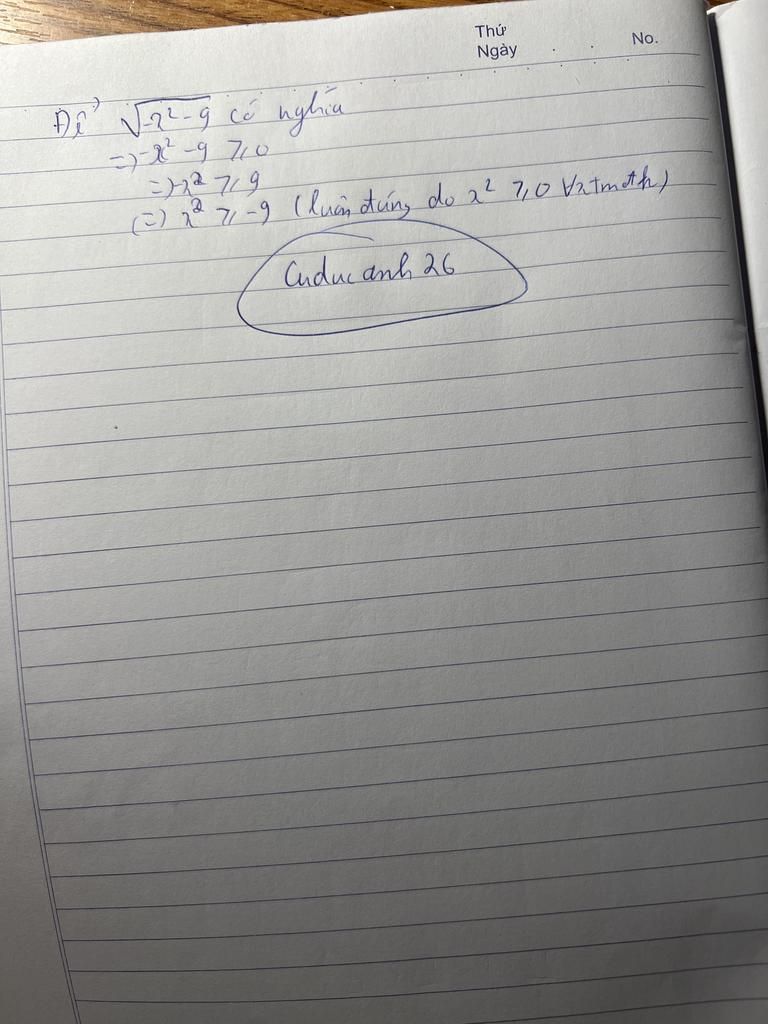 Thứ
Ngày . . No.
Để √-x² - 9 có nghĩa
=> -x² - 9 ≥ 0
=> -x² ≥ 9
(=) x² ≥ -9 (luôn đúng do x² ≥ 0 ∀x
Cuducanh 26